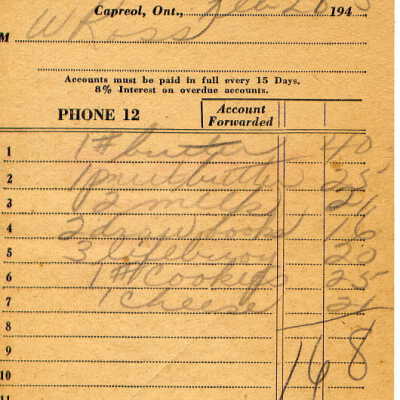 Capreol, Ont., Feb 194
M W Ross
Accounts must be paid in full every 15 Days.
8% Interest on overdue accounts.
PHONE 12 Account Forwarded
1 1# butter 40
2 1 pnutbutter 25
3 2 milk 21
4 2 draw books 16
5 3 lifebuoy 20
6 1# Cookies 25
7 1 cheese 21
8
9 168
10
11